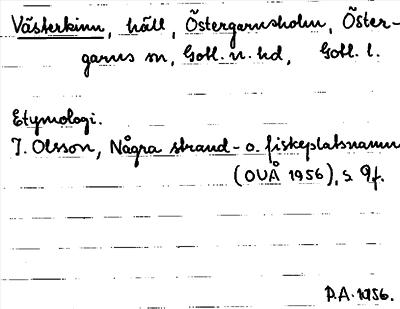 Västerkinn, häll, Östergarnsholm, Öster-
garns sn, Gotl. n. hd, Gotl. l.
Etymologi.
I. Olsson, Några strand- o. fiskeplatsnamn
(OUÅ 1956), s. 9f.
P.A. 1956.